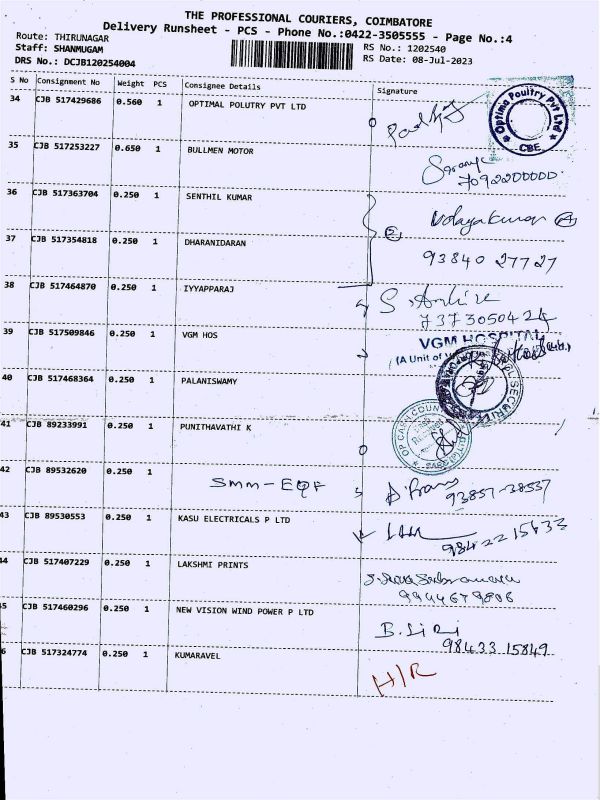 THE PROFESSIONAL COURIERS, COIMBATORE
Delivery Runsheet - PCS - Phone No.:0422-3505555 - Page No.:4
Route: THIRUNAGAR
Staff: SHANMUGAM
DRS No.: DCJB120254004
RS No.: 1202540
RS Date: 08-Jul-2023
S No Consignment No Weight PCS Consignee Details Signature
34 CJB 517429686 0.560 1 OPTIMAL POLUTRY PVT LTD
Optima Poultry Pvt Ltd
CBE
35 CJB 517253227 0.650 1 BULLMEN MOTOR
7092200000
36 CJB 517363704 0.250 1 SENTHIL KUMAR
37 CJB 517354818 0.250 1 DHARANIDARAN
93840 27727
38 CJB 517464870 0.250 1 IYYAPPARAJ
39 CJB 517509846 0.250 1 VGM HOS
VGM HOSPITAL
(A Unit of
40 CJB 517468364 0.250 1 PALANISWAMY
SECURITY
41 CJB 89233991 0.250 1 PUNITHAVATHI K
OP CASH COUNTER
42 CJB 89532620 0.250 1
SMM-EQF
93857-38537
43 CJB 89530553 0.250 1 KASU ELECTRICALS P LTD
98422 15633
44 CJB 517407229 0.250 1 LAKSHMI PRINTS
9944679808
5 CJB 517460296 0.250 1 NEW VISION WIND POWER P LTD
B.Siri
98433 15849
6 CJB 517324774 0.250 1 KUMARAVEL
H/R